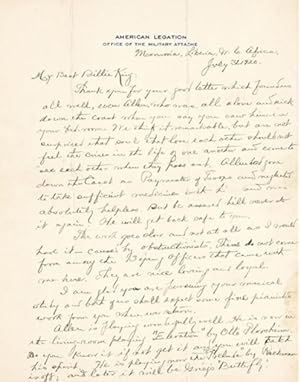 AMERICAN LEGATION
OFFICE OF THE MILITARY ATTACHE
Monrovia, Liberia, W. C. Africa,
July 3, 1920.
My Dear Billie King:
Thank you for your good letter which found us
all well, even Allen who was all alone and sick
down the coast when you say you saw him in
your bed room. We think it remarkable, but are not
surprised that souls that love each other should
feel the crises in the life of one another and come to
see each other when they pass out. Allen had gone
down the Coast as Paymaster of Troops and neglected
to take sufficient medicines with and was
absolutely helpless. But be assured he'll never do
it again. He will get back safe to me.
The work goes slow and not at all as I would
have it - caused by obstructionists. These do not come
from among the Officers that came with
me here. They are nice loving and loyal.
I am glad you are pursuing your musical
study and but you shall expect some fine pianistic
work from you when we return.
Allen is playing wonderfully well. He is now in
the living-room playing "Elevation" by Otto Floersheim.
Do you know it if not get it and you will
his spirit. He is playing more the Prelude by Rachman-
inoff, and later it will be Grieg's Butterfly.